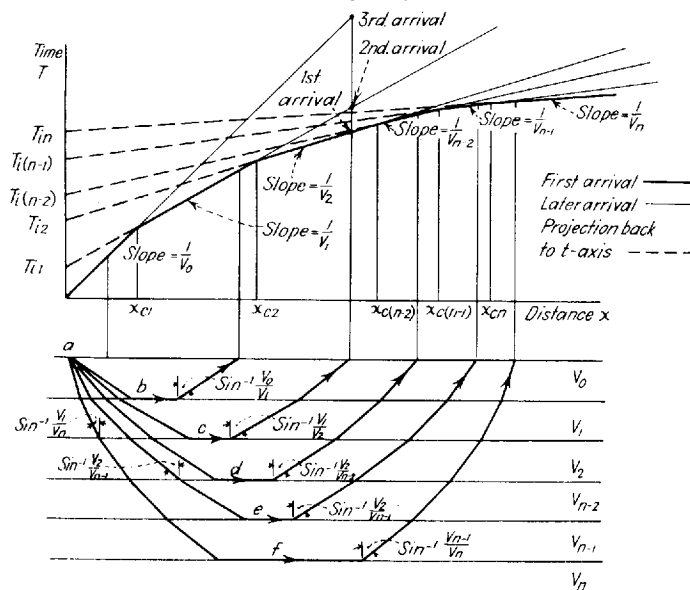 Time
T
3rd. arrival
2nd. arrival
1st
arrival
Tin
Ti(n-1)
Ti(n-2)
Ti2
Ti1
Slope = 1/V0
Slope = 1/V1
Slope = 1/V2
Slope = 1/Vn-2
Slope = 1/Vn-1
Slope = 1/Vn
First arrival
Later arrival
Projection back
to t-axis
xc1
xc2
xc(n-2)
xc(n-1)
xcn
Distance x
a
b
Sin-1 V0/V1
V0
Sin-1 V1/Vn
c
Sin-1 V1/V2
V1
Sin-1 V2/Vn-1
d
V2
e
Sin-1 V2/Vn-1
Vn-2
f
Sin-1 Vn-1/Vn
Vn-1
Vn